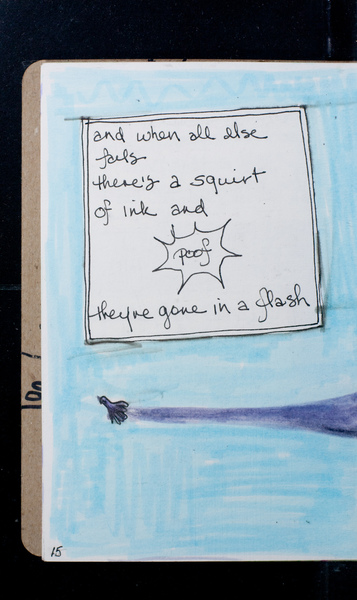 and when all else
fails
there's a squirt
of ink and
poof
they're gone in a flash
15